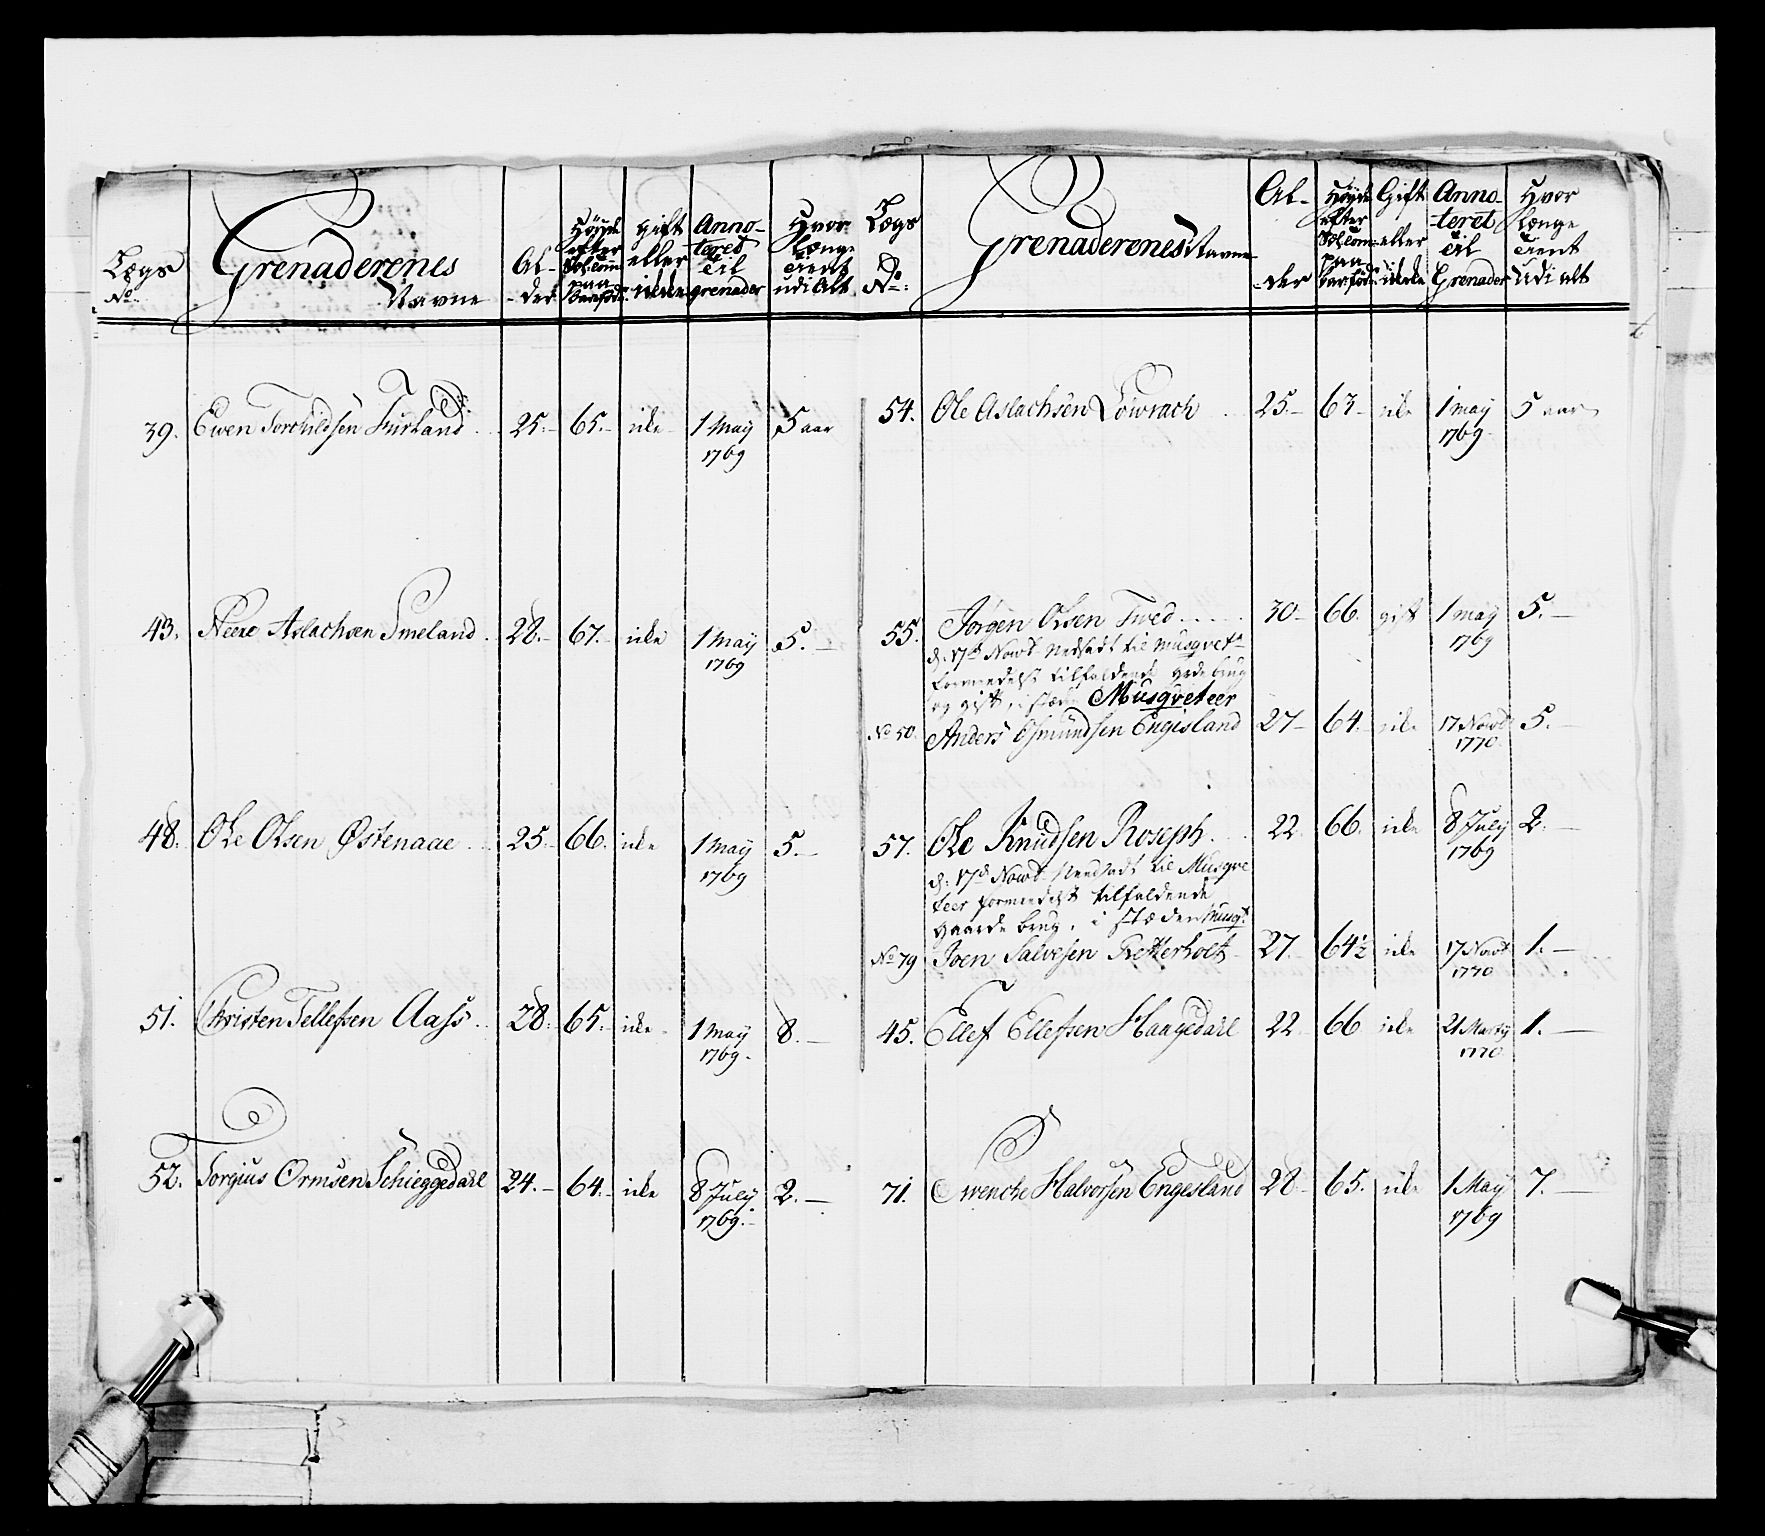 Lægs No.
Grenaderenes Navne
Al-der
Høyde efter Tol: uden paa Barfod
gift eller icke
Anno-teret til grenader
Hvor længe tient udi Alt
39. Ewen Torchildsen Furland 25. 65. icke 1 Maij 1769 5 aar
43. Peere Aslachsen Smeland 28. 67. icke 1 Maij 1769 5.
48. Ole Olsen Østenaae 25. 66. icke 1 Maij 1769 5.
51. Christen Tellefsen Aass 28. 65. icke 1 Maij 1769. 8.
52. Torgius Ormsen Schieggedall 24. 64. icke 8 July 1769. 2.
Lægs No:
Grenaderenes Navne
Al-der
Høyde efter paa Barfod
Gift eller icke
Anno-teret til Grenader
Hvor længe tient udi alt
54. Ole Aslachsen Lowrach 25. 63 icke 1 maij 1769 5 aar
55. Jørgen Olsen Tved 30 66. gift 1 maij 1769 5.
d: 17de Novbr Nedsadt til Musqvetr
formedelst tilfaldende Gaarde brug
og gift, i stæden Musqveteer
No 50. Anders Osmundsen Engisland 27 64. icke 17 Novbr 1770. 5.
57. Ole Knudsen Roseph. 22 66. icke 8 July 1769 2.
d: 17de Novbr Nedsadt til Musqve
teer formedelst tilfaldende
gaarde brug, i stæden Musqt
No 79 Joen Salvesen Retterholt 27. 64½ icke 17 Novbr 1770 1.
45. Ellef Ellefsen Haugedall 22 66 icke 21 Martij 1770 1.
71. Swenche Halvorsen Engesland 28 65. icke 1 Maij 1769 7.